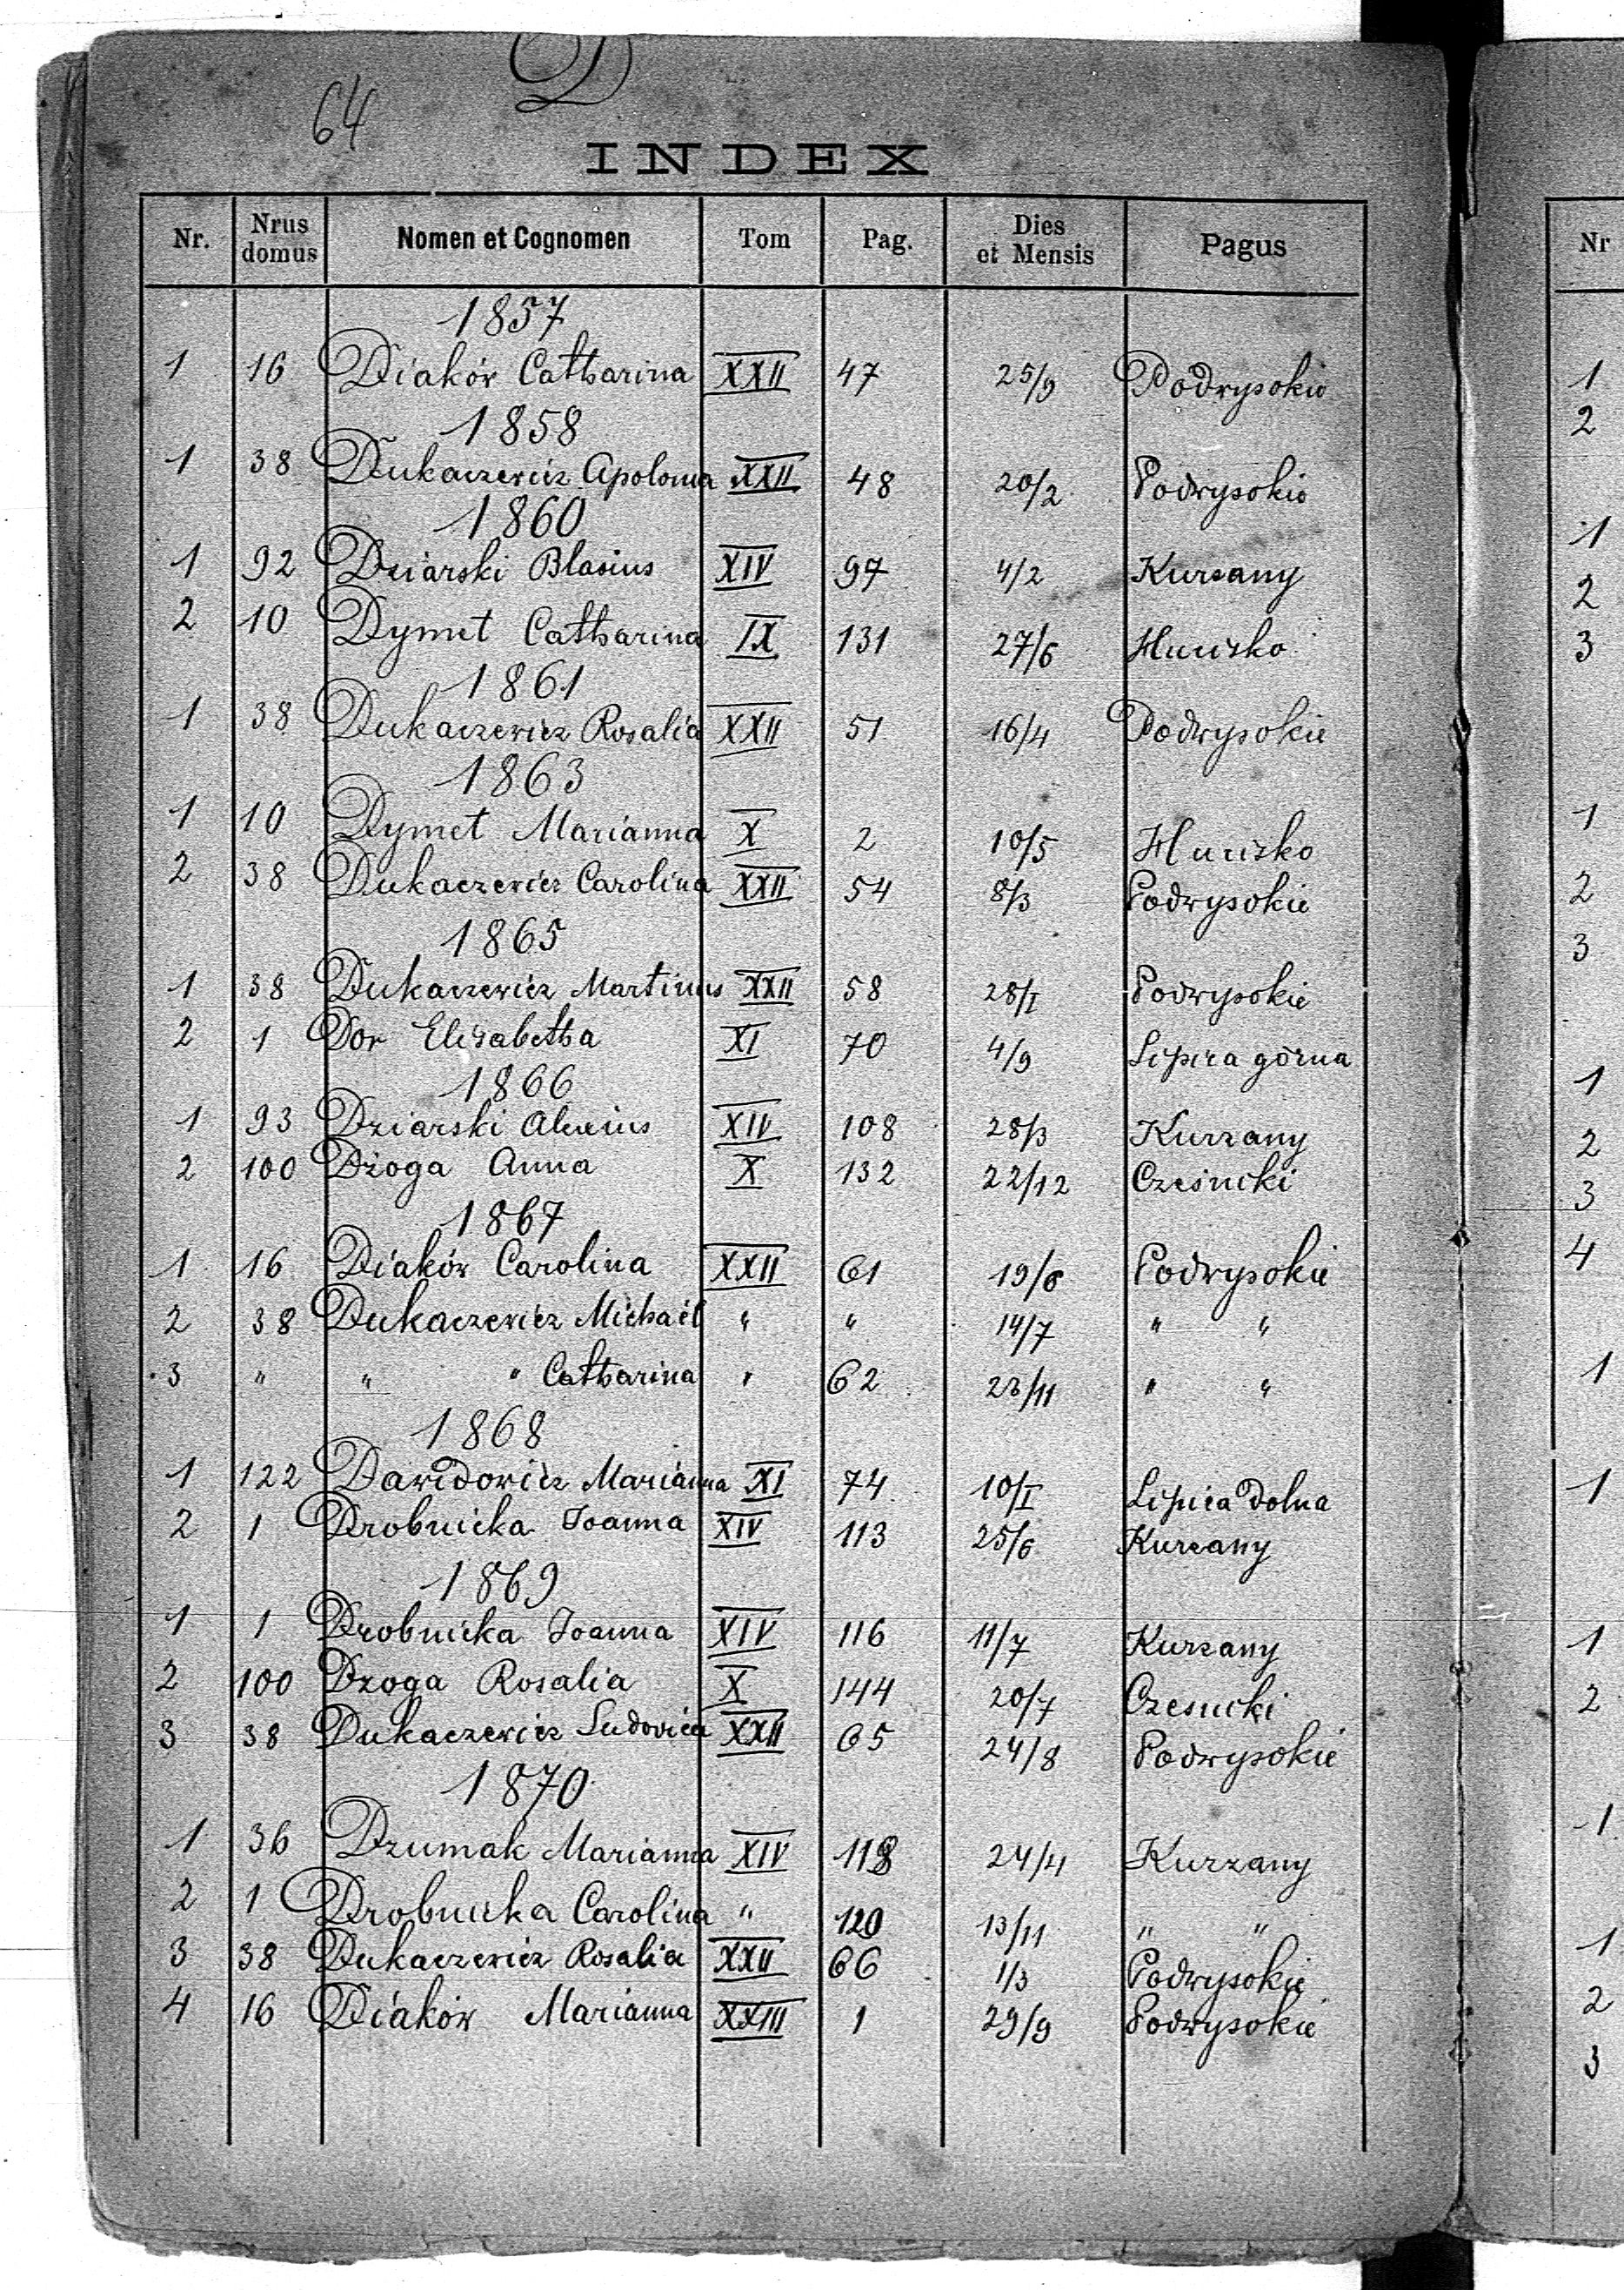 D
64
INDEX
Nr. Nrus domus Nomen et Cognomen Tom Pag. Dies et Mensis Pagus
1857
1 16 Diaków Catharina XXII 47 25/9 Podwysokie
1858
1 38 Dukaczewicz Apolonia XXII 48 20/2 Podwysokie
1860
1 92 Dziarski Blasius XIV 97 4/2 Kurzany
2 10 Dymet Catharina IX 131 27/6 Hucisko
1861
1 38 Dukaczewicz Rosalia XXII 51 16/4 Podwysokie
1863
1 10 Dymet Marianna X 2 10/5 Hucisko
2 38 Dukaczewicz Carolina XXII 54 8/3 Podwysokie
1865
1 38 Dukaczewicz Martinus XXII 58 28/I Podwysokie
2 1 Dor Elisabetha XI 70 4/9 Lipica górna
1866
1 93 Dziarski Alexius XIV 108 28/3 Kurzany
2 100 Dżoga Anna X 132 22/12 Cześniki
1867
1 16 Diaków Carolina XXII 61 19/6 Podwysokie
2 38 Dukaczewicz Michaël " " 14/7 " "
3 " " " Catharina " 62 /11 " "
1868
1 122 Dawidowicz Marianna XI 74 10/I Lipica dolna
2 1 Drobnicka Joanna XIV 113 25/6 Kurzany
1869
1 1 Drobnicka Joanna XIV 116 11/7 Kurzany
2 100 Dzoga Rosalia X 144 20/7 Czesniki
3 38 Dukaczewicz Ludovica XXII 65 24/8 Podwysokie
1870
1 36 Dzumak Marianna XIV 118 24/4 Kurzany
2 1 Drobnicka Carolina " 120 13/11 " "
3 38 Dukaczewicz Rosalia XXII 66 1/3 Podwysokie
4 16 Diaków Marianna XXIII 1 29/9 Podwysokie
Nr
1
2
1
2
3
1
2
3
1
2
3
4
1
1
1
2
1
1
2
3